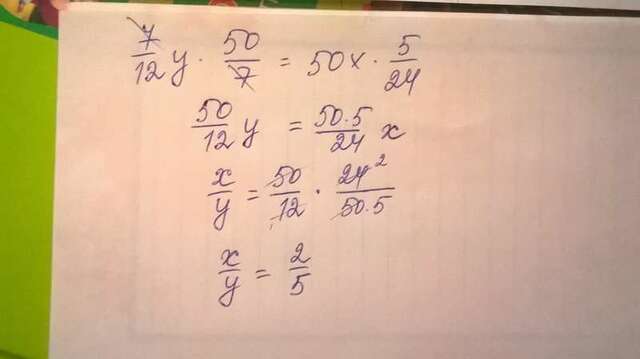 7/12 y · 50/7 = 50x · 5/24
50/12 y = 50·5/24 x
x/y = 50/12 · 24²/50·5
x/y = 2/5